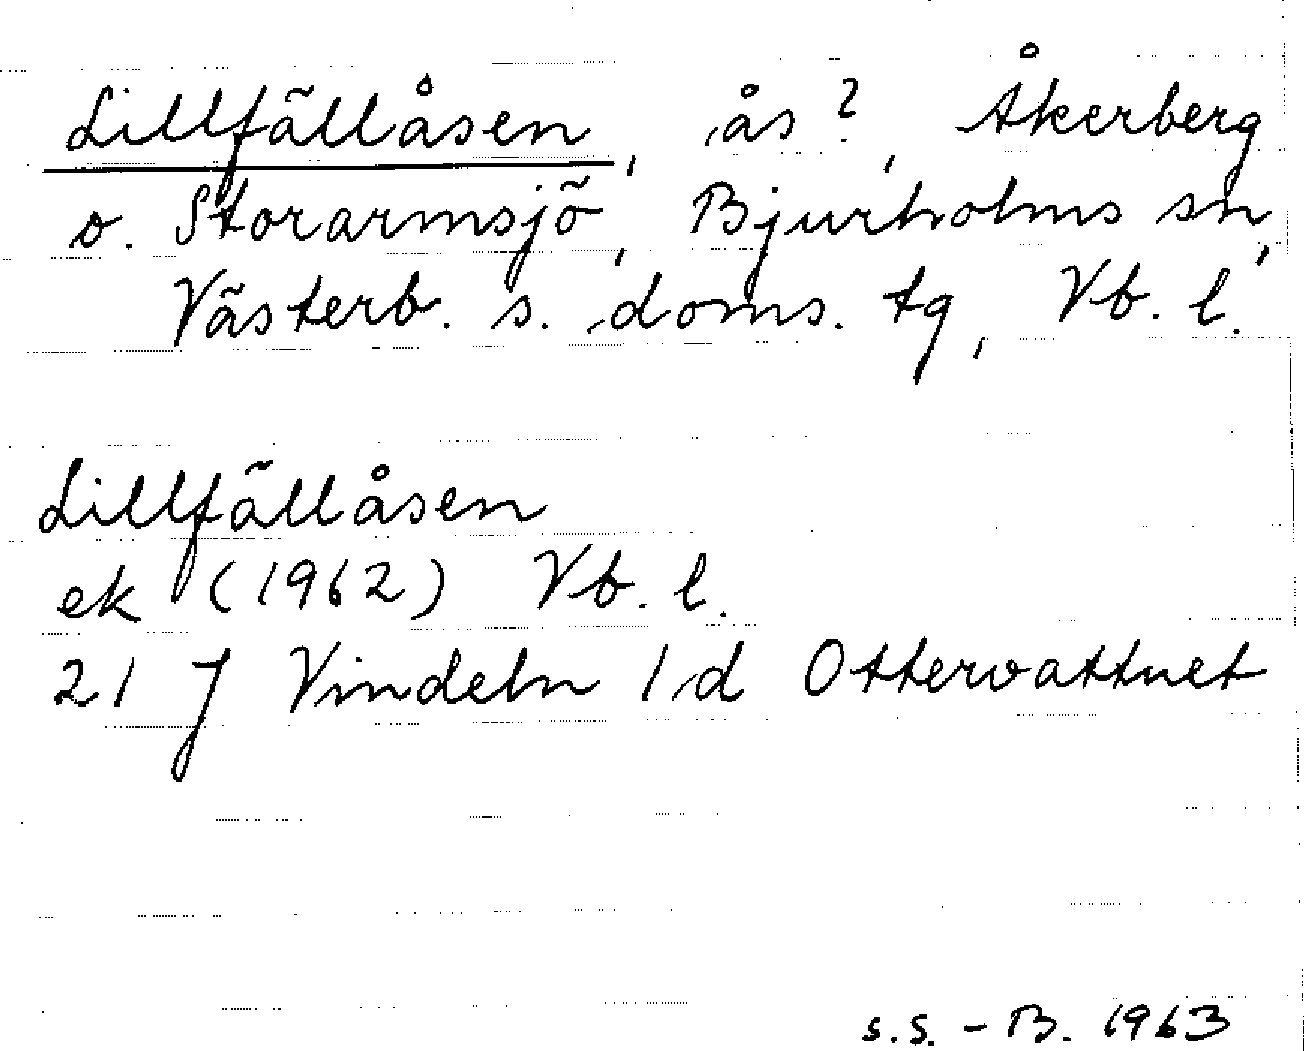 Lillfällåsen, ås?, Åkerberg
o. Storarmsjö, Bjurholms sn,
Västerb. s. doms. tg, Vb. l.
Lillfällåsen
ek (1962) Vb. l.
21 J Vindeln 1d Ottervattnet
s.s. - B. 1963